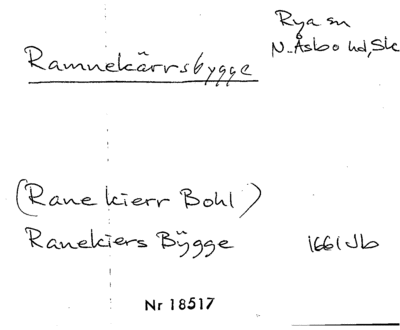 Rya sn
N. Åsbo hd, Sk
Ramnekärrsbygge
(Ranekierr Bohl)
Ranekiers Bÿgge 1661 Jb
Nr 18517